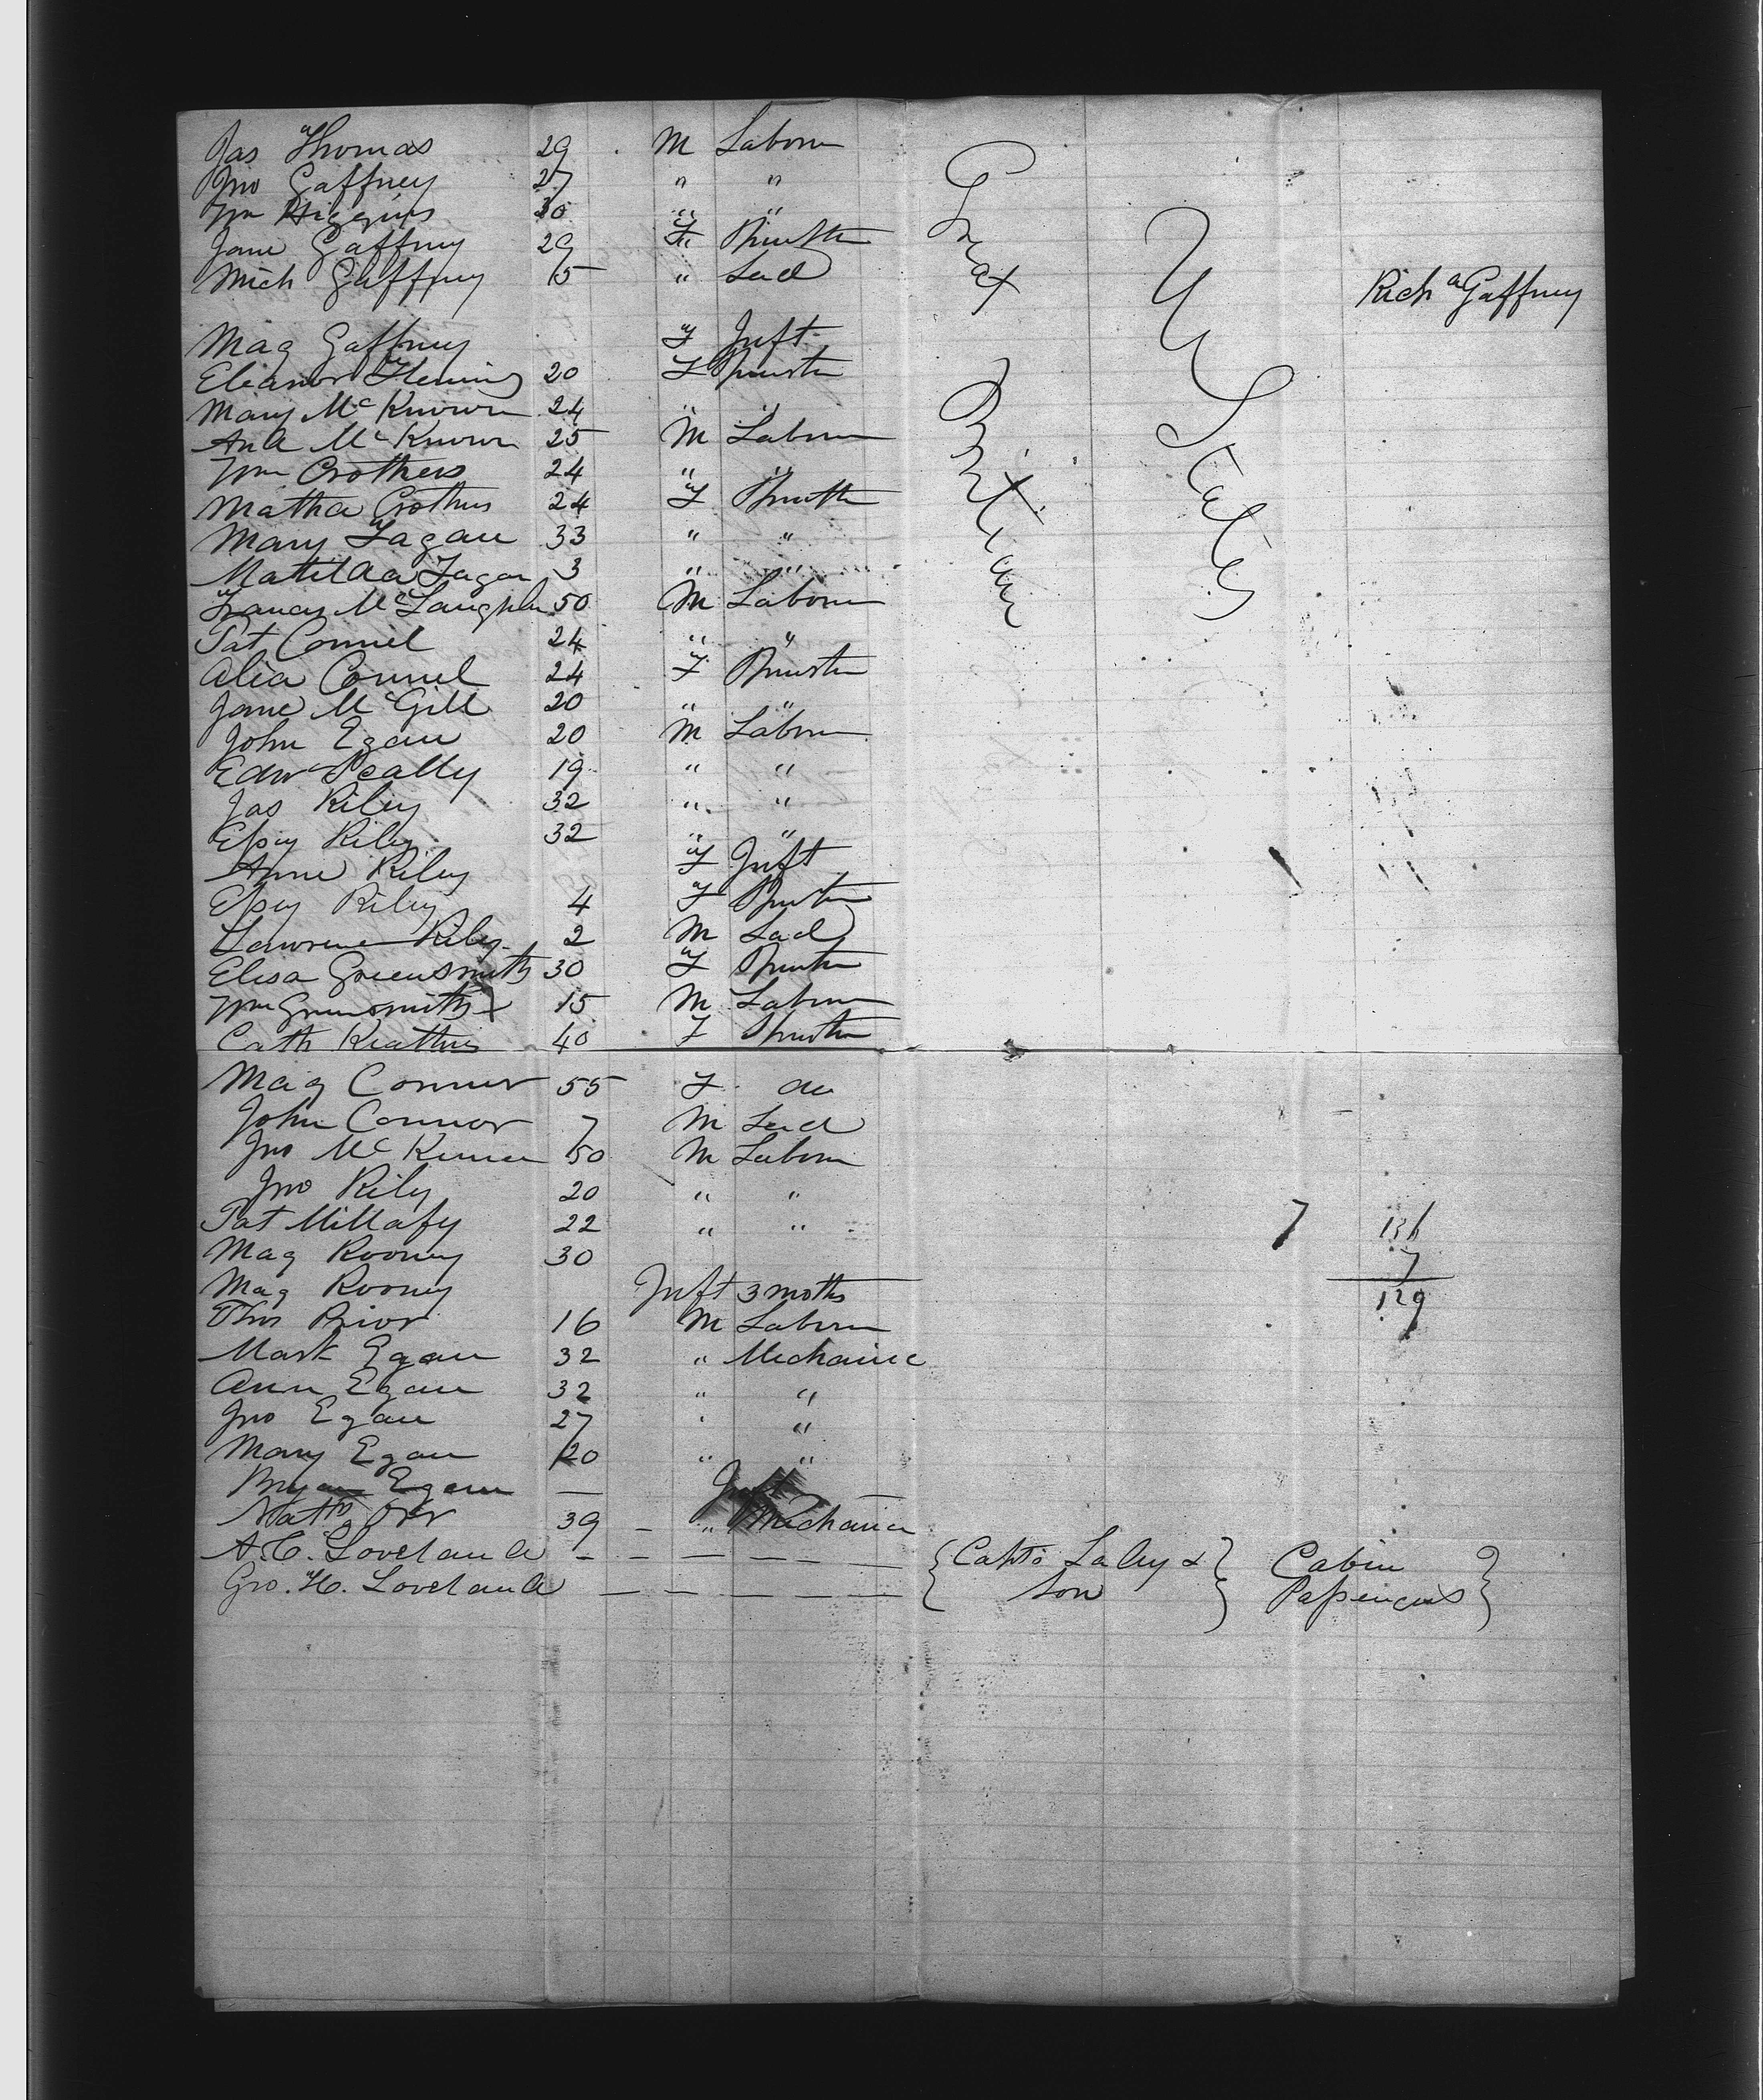 Jas Thomas 29 M Labour
Jno Gaffney 27 " "
Wm Higgins 30 " "
Jane Gaffney 29 F Spinster
Mich Gaffney 15 " Lad Rich Gaffney
Mag Gaffney F Inft
Eleanor Fleming 20 F Spinster
Mary McKnown 24 " "
And McKnown 25 M Labour
Wm Crothers 24 " "
Matha Crothers 24 F Spinster
Mary Fagan 33 " "
Matilda Fagan 3 " "
Francis McLaughlin 50 M Labour
Pat Connel 24 " "
Alica Connel 24 F Spinster
Jane McGill 20 " "
John Egan 20 M Labour
Edwd Scally 19 " "
Jas Riley 32 " "
Essy Riley 32 " "
Anne Riley F Inft
Essy Riley 4 F Spinster
Lawrence Riley 2 M Lad
Elisa Greensmith 30 F Spinster
Wm Greensmith X 15 M Labour
Cath 40 F Spinster
Great Britian
U States
Mag Connor 55 F do
John Connor 7 M Lad
Jno McKennan 50 M Labour
Jno Riley 20 " "
Pat 22 " " 7 136
Mag Rooney 30 7
Mag Rooney Inft 3 moths 129
Thos Prior 16 M Labour
Mark Egan 32 " Mechanic
Ann Egan 32 " "
Jno Egan 27 " "
Mary Egan 20 " "
Bryan Egan — Inft
Natth Orr 39 — " Mechanic
A. C. Loveland — — — — — — { Capts Lady & } Cabin }
Geo. H. Loveland — — — — — — { Son } Passengers }